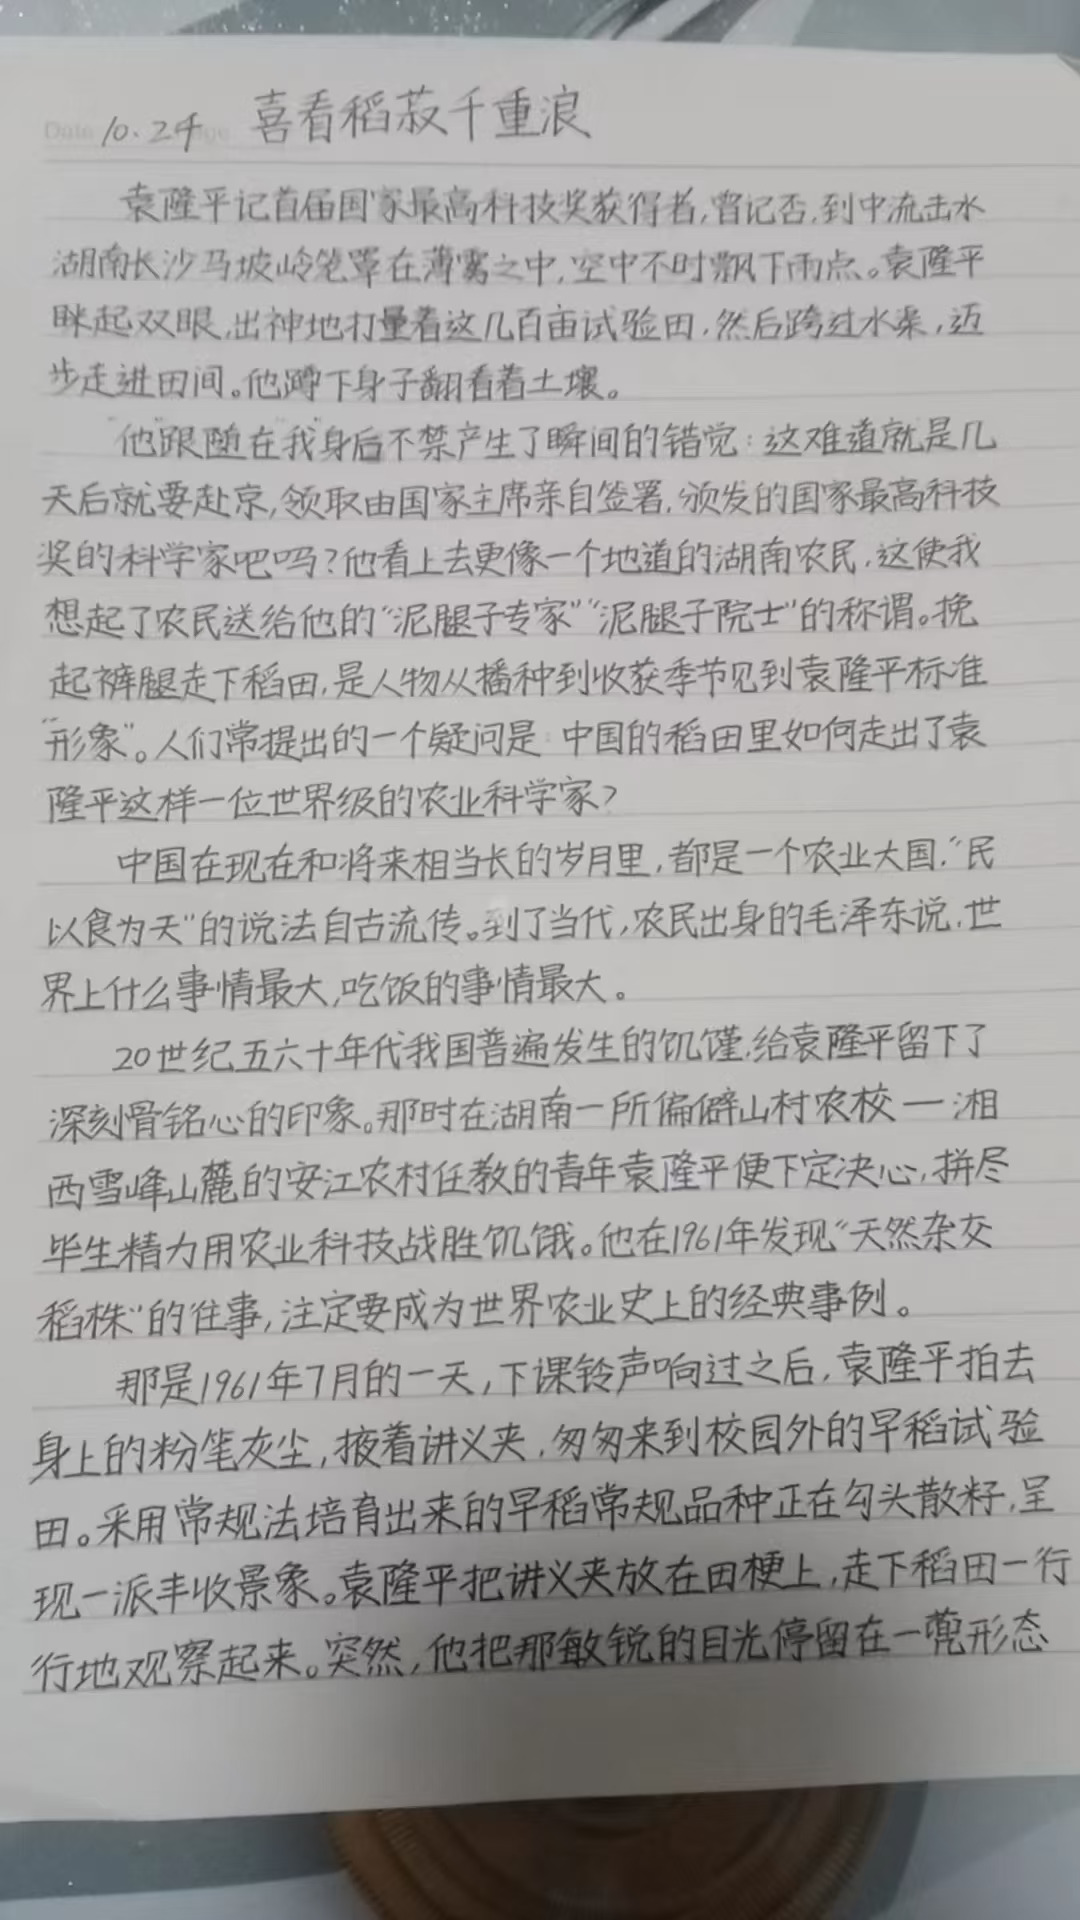 10.24 喜看稻菽千重浪
袁隆平记首届国家最高科技奖获得者,曾记否,到中流击水
湖南长沙马坡岭笼罩在薄雾之中,空中不时飘下雨点。袁隆平
眯起双眼,出神地打量着这几百亩试验田,然后跨过水渠,迈
步走进田间。他蹲下身子翻看着土壤。
"他"跟随在"我"身后不禁产生了瞬间的错觉:这难道就是几
天后就要赴京,领取由国家主席亲自签署,颁发的国家最高科技
奖的科学家吧吗?他看上去更像一个地道的湖南农民,这使我
想起了农民送给他的"泥腿子专家""泥腿子院士"的称谓。挽
起裤腿走下稻田,是人物从播种到收获季节见到袁隆平标准
"形象"。人们常提出的一个疑问是:中国的稻田里如何走出了袁
隆平这样一位世界级的农业科学家?
中国在现在和将来相当长的岁月里,都是一个农业大国,"民
以食为天"的说法自古流传。到了当代,农民出身的毛泽东说,世
界上什么事情最大,吃饭的事情最大。
20世纪五六十年代我国普遍发生的饥馑,给袁隆平留下了
深刻骨铭心的印象。那时在湖南一所偏僻山村农校—湘
西雪峰山麓的安江农村任教的青年袁隆平便下定决心,拼尽
毕生精力用农业科技战胜饥饿。他在1961年发现"天然杂交
稻株"的往事,注定要成为世界农业史上的经典事例。
那是1961年7月的一天,下课铃声响过之后,袁隆平拍去
身上的粉笔灰尘,掖着讲义夹,匆匆来到校园外的早稻试验
田。采用常规法培育出来的早稻常规品种正在勾头散籽,呈
现一派丰收景象。袁隆平把讲义夹放在田梗上,走下稻田一行
行地观察起来。突然,他把那敏锐的目光停留在一蔸形态